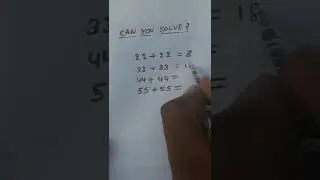 CAN YOU SOLVE ?
18
22 + 22 = 8
33 + 33 = 1
44 + 44 =
55 + 55 =